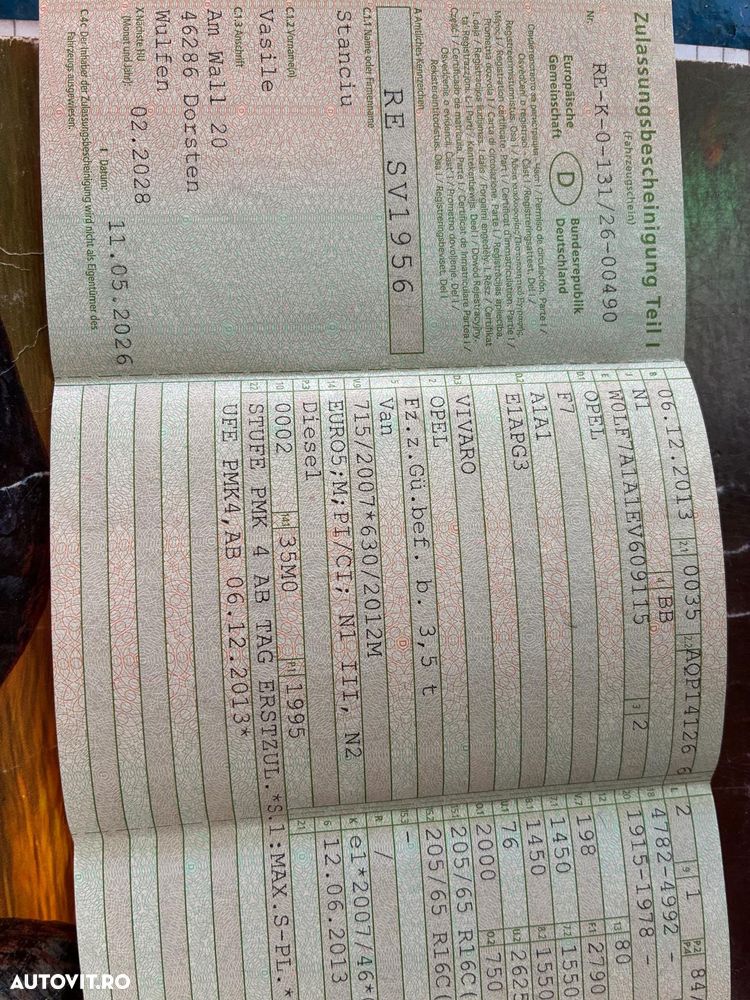 Zulassungsbescheinigung Teil I
(Fahrzeugschein)
Nr. RE-K-0-131/26-00490
Europäische
Gemeinschaft
D
Bundesrepublik
Deutschland
A Amtliches Kennzeichen
RE SV1956
C.1.1 Name oder Firmenname
Stanciu
C.1.2 Vorname(n)
Vasile
C.1.3 Anschrift
Am Wall 20
46286 Dorsten
Wulfen
X Nächste HU
(Monat und Jahr): 02.2028
I Datum: 11.05.2026
C.4c: Der Inhaber der Zulassungsbescheinigung wird nicht als Eigentümer des
Fahrzeugs ausgewiesen.
B 06.12.2013 2.1 0035 2.2 AQP14126 6
J N1 4 BB
E W0LF7A1A1EV609115 3 2
D.1 OPEL
F7
D.2 A1A1
E1APG3
D.3 VIVARO
2 OPEL
5 Fz.z.Gü.bef. b. 3,5 t
Van
V.9 715/2007*630/2012M
14 EURO5;M;PI/CI; N1 III, N2
P.3 Diesel
10 0002 14.1 35M0 P.1 1995
22 STUFE PMK 4 AB TAG ERSTZUL.*S.1:MAX.S-PL.*
UFE PMK4,AB 06.12.2013*
L 2 9 1 P.2 P.4 84
18 4782-4992 -
19 1915-1978 -
20 - 13 80
12 198 F.1 2790
7.1 1450 7.2 1550
8.1 1450 8.2 1550
U.1 76 U.2 2625
O.1 2000 O.2 750
15.1 205/65 R16C(
15.2 205/65 R16C(
15.3 -
R /
K e1*2007/46*
6 12.06.2013
21
AUTOVIT.RO